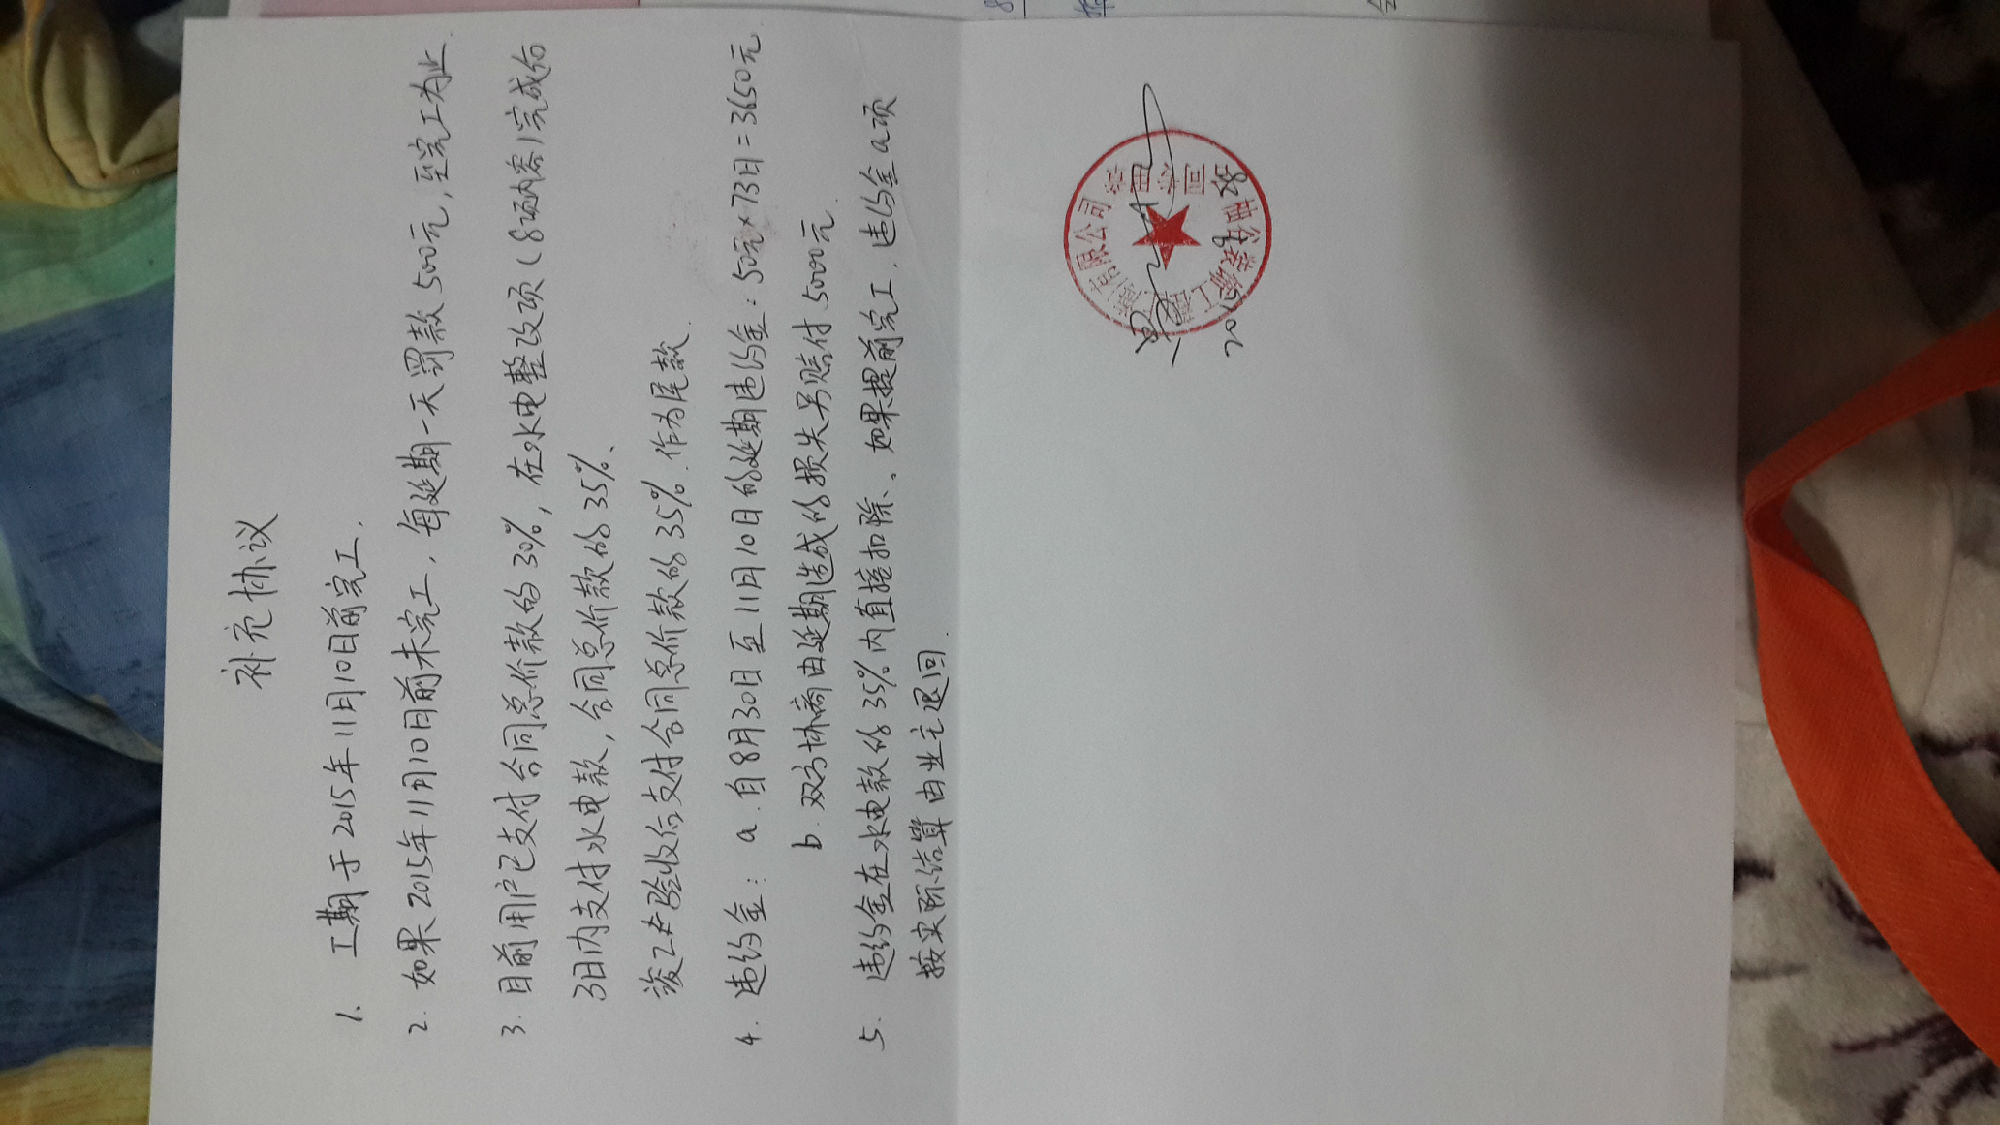 补充协议
1. 工期于2015年11月10日前完工.
2. 如果2015年11月10日前未完工, 每延期一天罚款500元, 至完工为止.
3. 目前用户已支付合同总价款的30%, 在水电整改项(8项内容)完成后
3日内支付水电款, 合同总价款的35%、
竣工验收后支付合同总价款的35%. 作为尾款.
4. 违约金: a. 自8月30日至11月10日的延期违约金: 50元×73日=3650元
b. 双方协商由延期造成的损失另赔付5000元.
5. 违约金在水电款的35%内直接扣除、如果提前完工, 违约金a项
按实际结算由业主退回.
装饰工程
有限公司